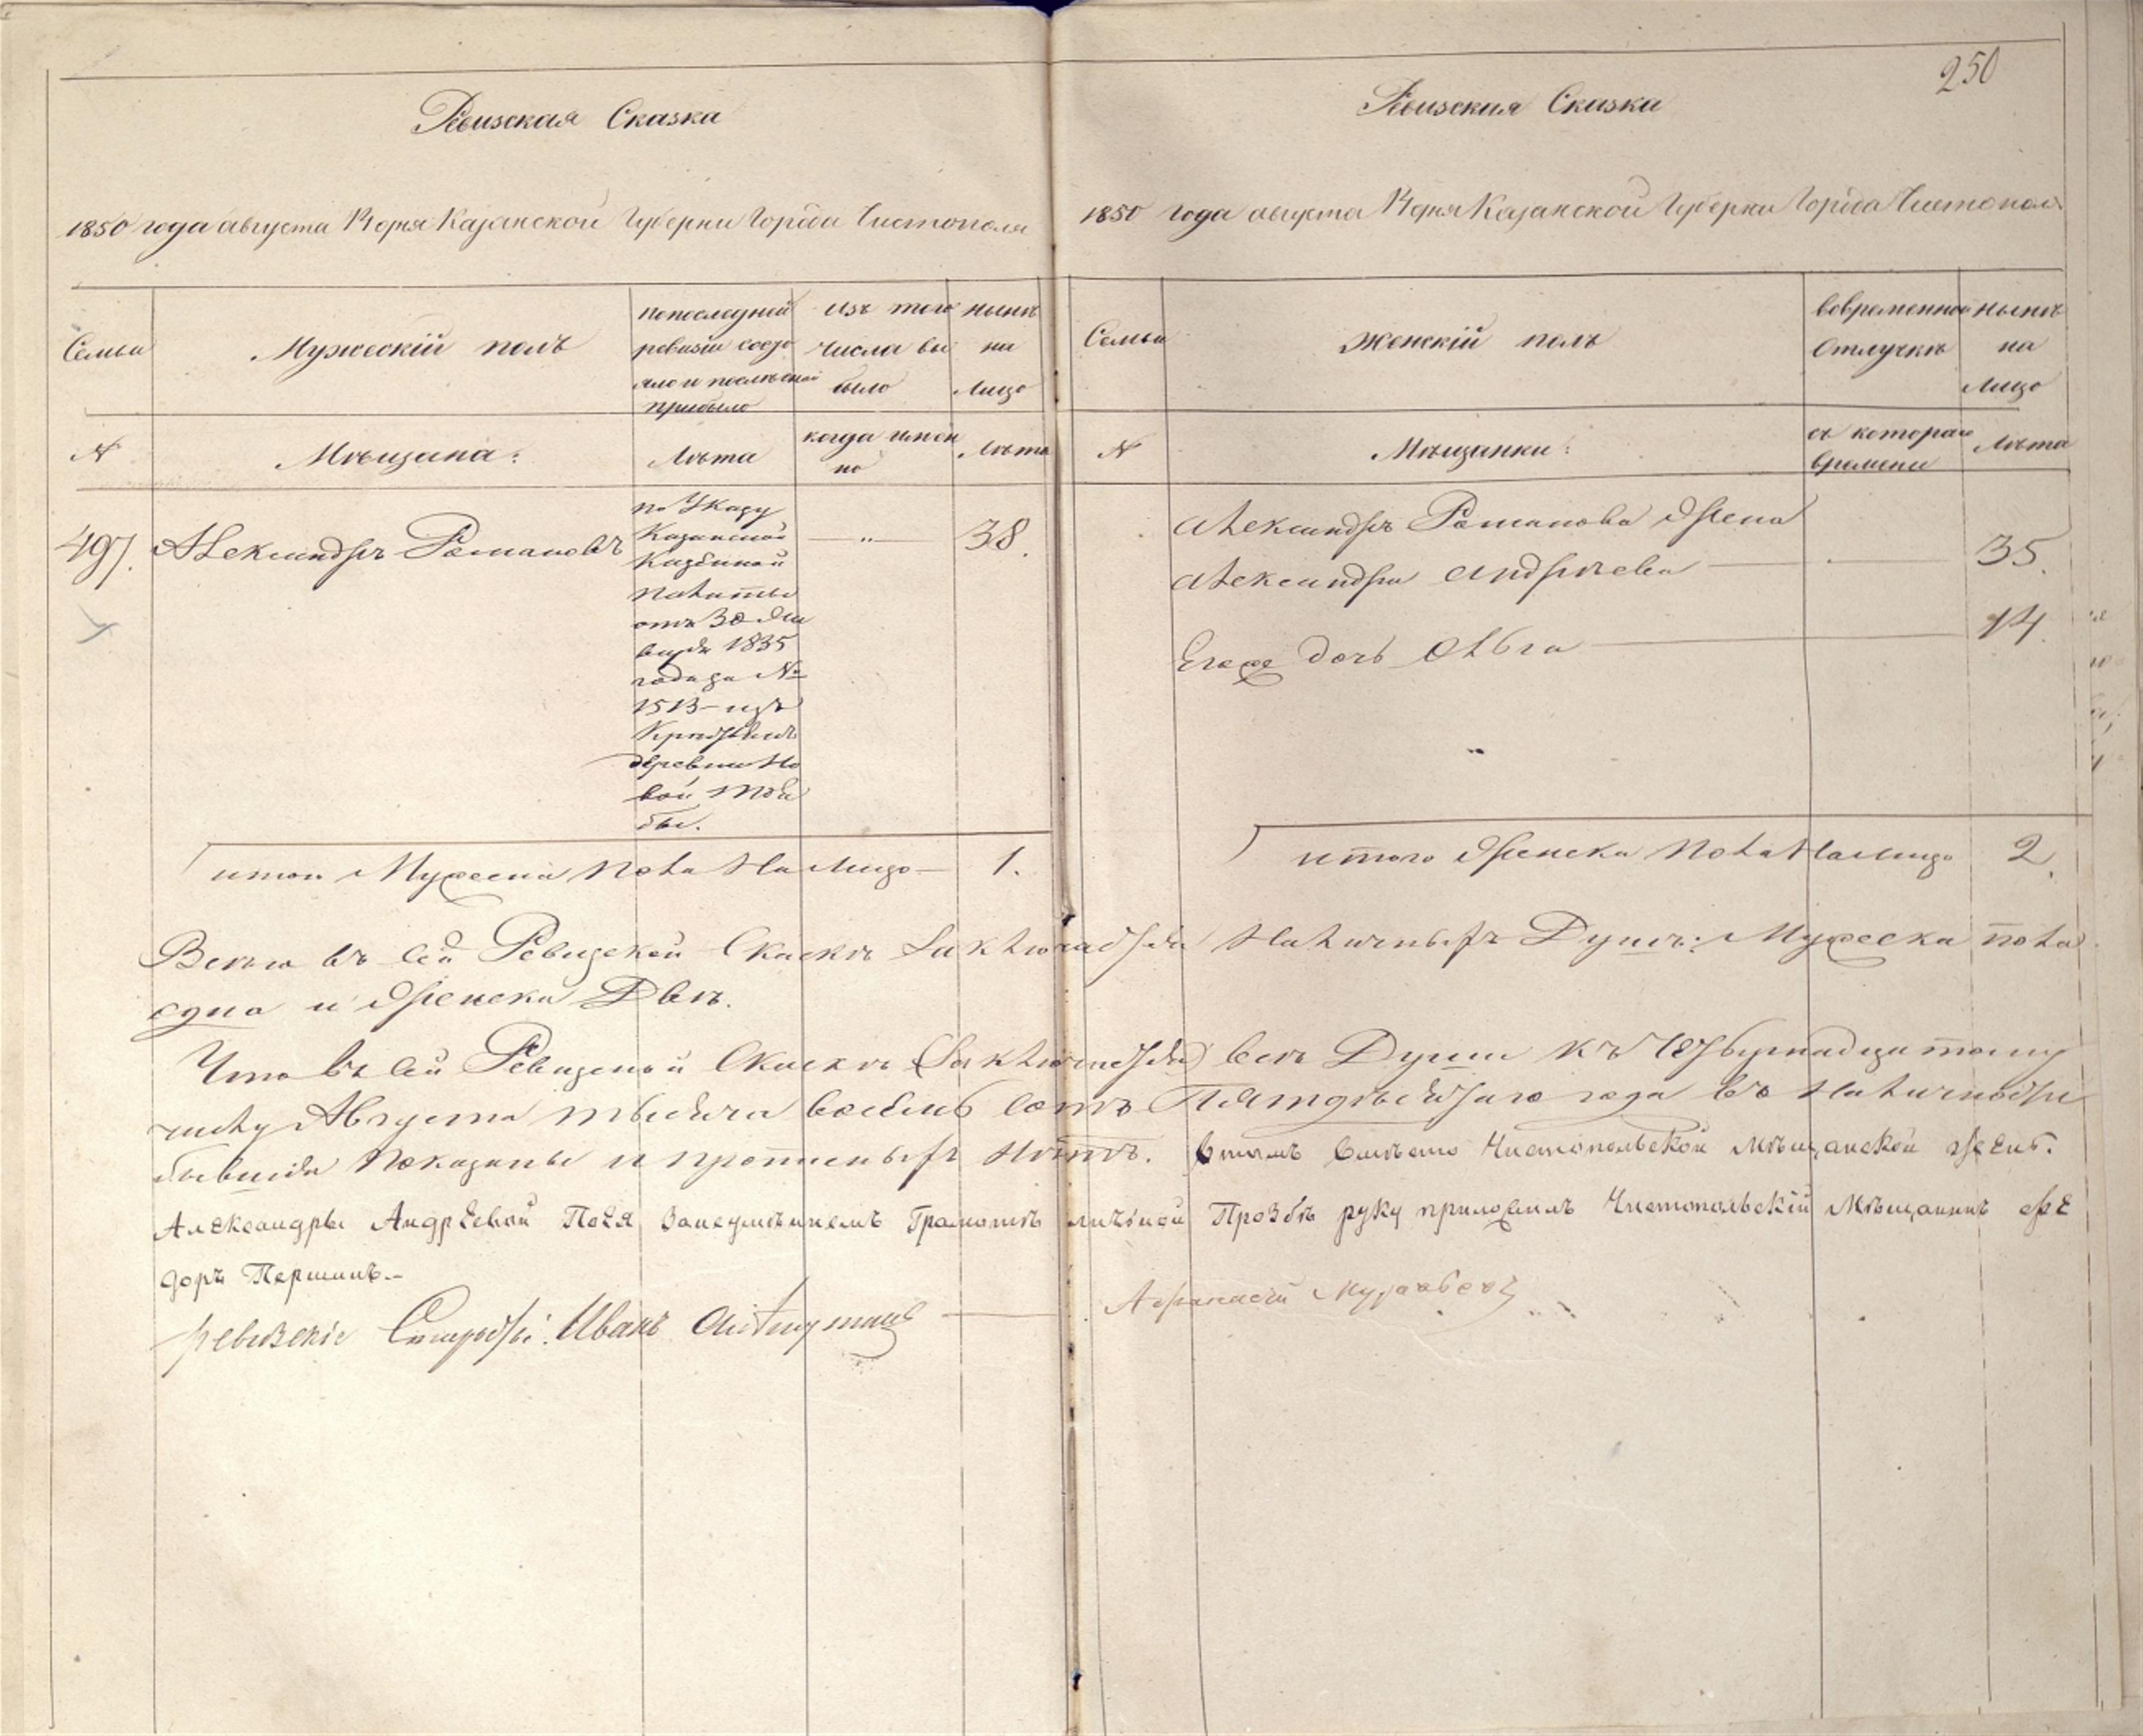 250
Ревизская Сказка
1850 года августа 14 дня Казанской Губерни Города Чистополя
Семьи
Мужескій полъ
попоследней
ревизіи состо
яло и послѣ оной
прибыло
изъ того
числа вы
было
нынѣ
на
лицо
N
Мѣщана:
Лѣта
когда имен
но
Лѣта
497.
Александръ Романовъ
по Указу
Казанской
Казенной
Палаты
отъ 30 Ян
варя 1835
года за №
1513 изъ
деревни Но
вой
38.
итого Мужеска Пола На Лицо 1.
Ревизская Сказка
1850 года августа 14 дня Казанской Губерни Города Чистополя
Семьи
Женскій полъ
вовременной
отлучкѣ
нынѣ
на
лицо
N
Мѣщанки:
съ котораго
времени
Лѣта
Александръ Романова Жена
Александра Андрѣева 35.
Егоже дочь Ольга 14.
итого Женска Пола На Лицо 2.
Всего въ сей Ревизской Скаскѣ Заключается Наличныхъ Душъ: Мужеска пола
една и Женска Двѣ.
Что въ сей Ревизской Скаскѣ Заключается всѣ Души къ Четырнадцатому
числу Августа тысяча восемь сотъ Пятдесятаго года въ Наличности
бывшія Показаны и прописныхъ Нѣтъ. Вместо Чистопольской Мѣщанской жены.
Александры Андрѣевой По Ея Занеумѣниемъ Грамотѣ личной Прозбѣ руку приложилъ Чистопольскій Мѣщанинъ Фе
доръ Першинъ.
Ревизскіе Старосты: Иванъ
Афанасій Муравьевъ